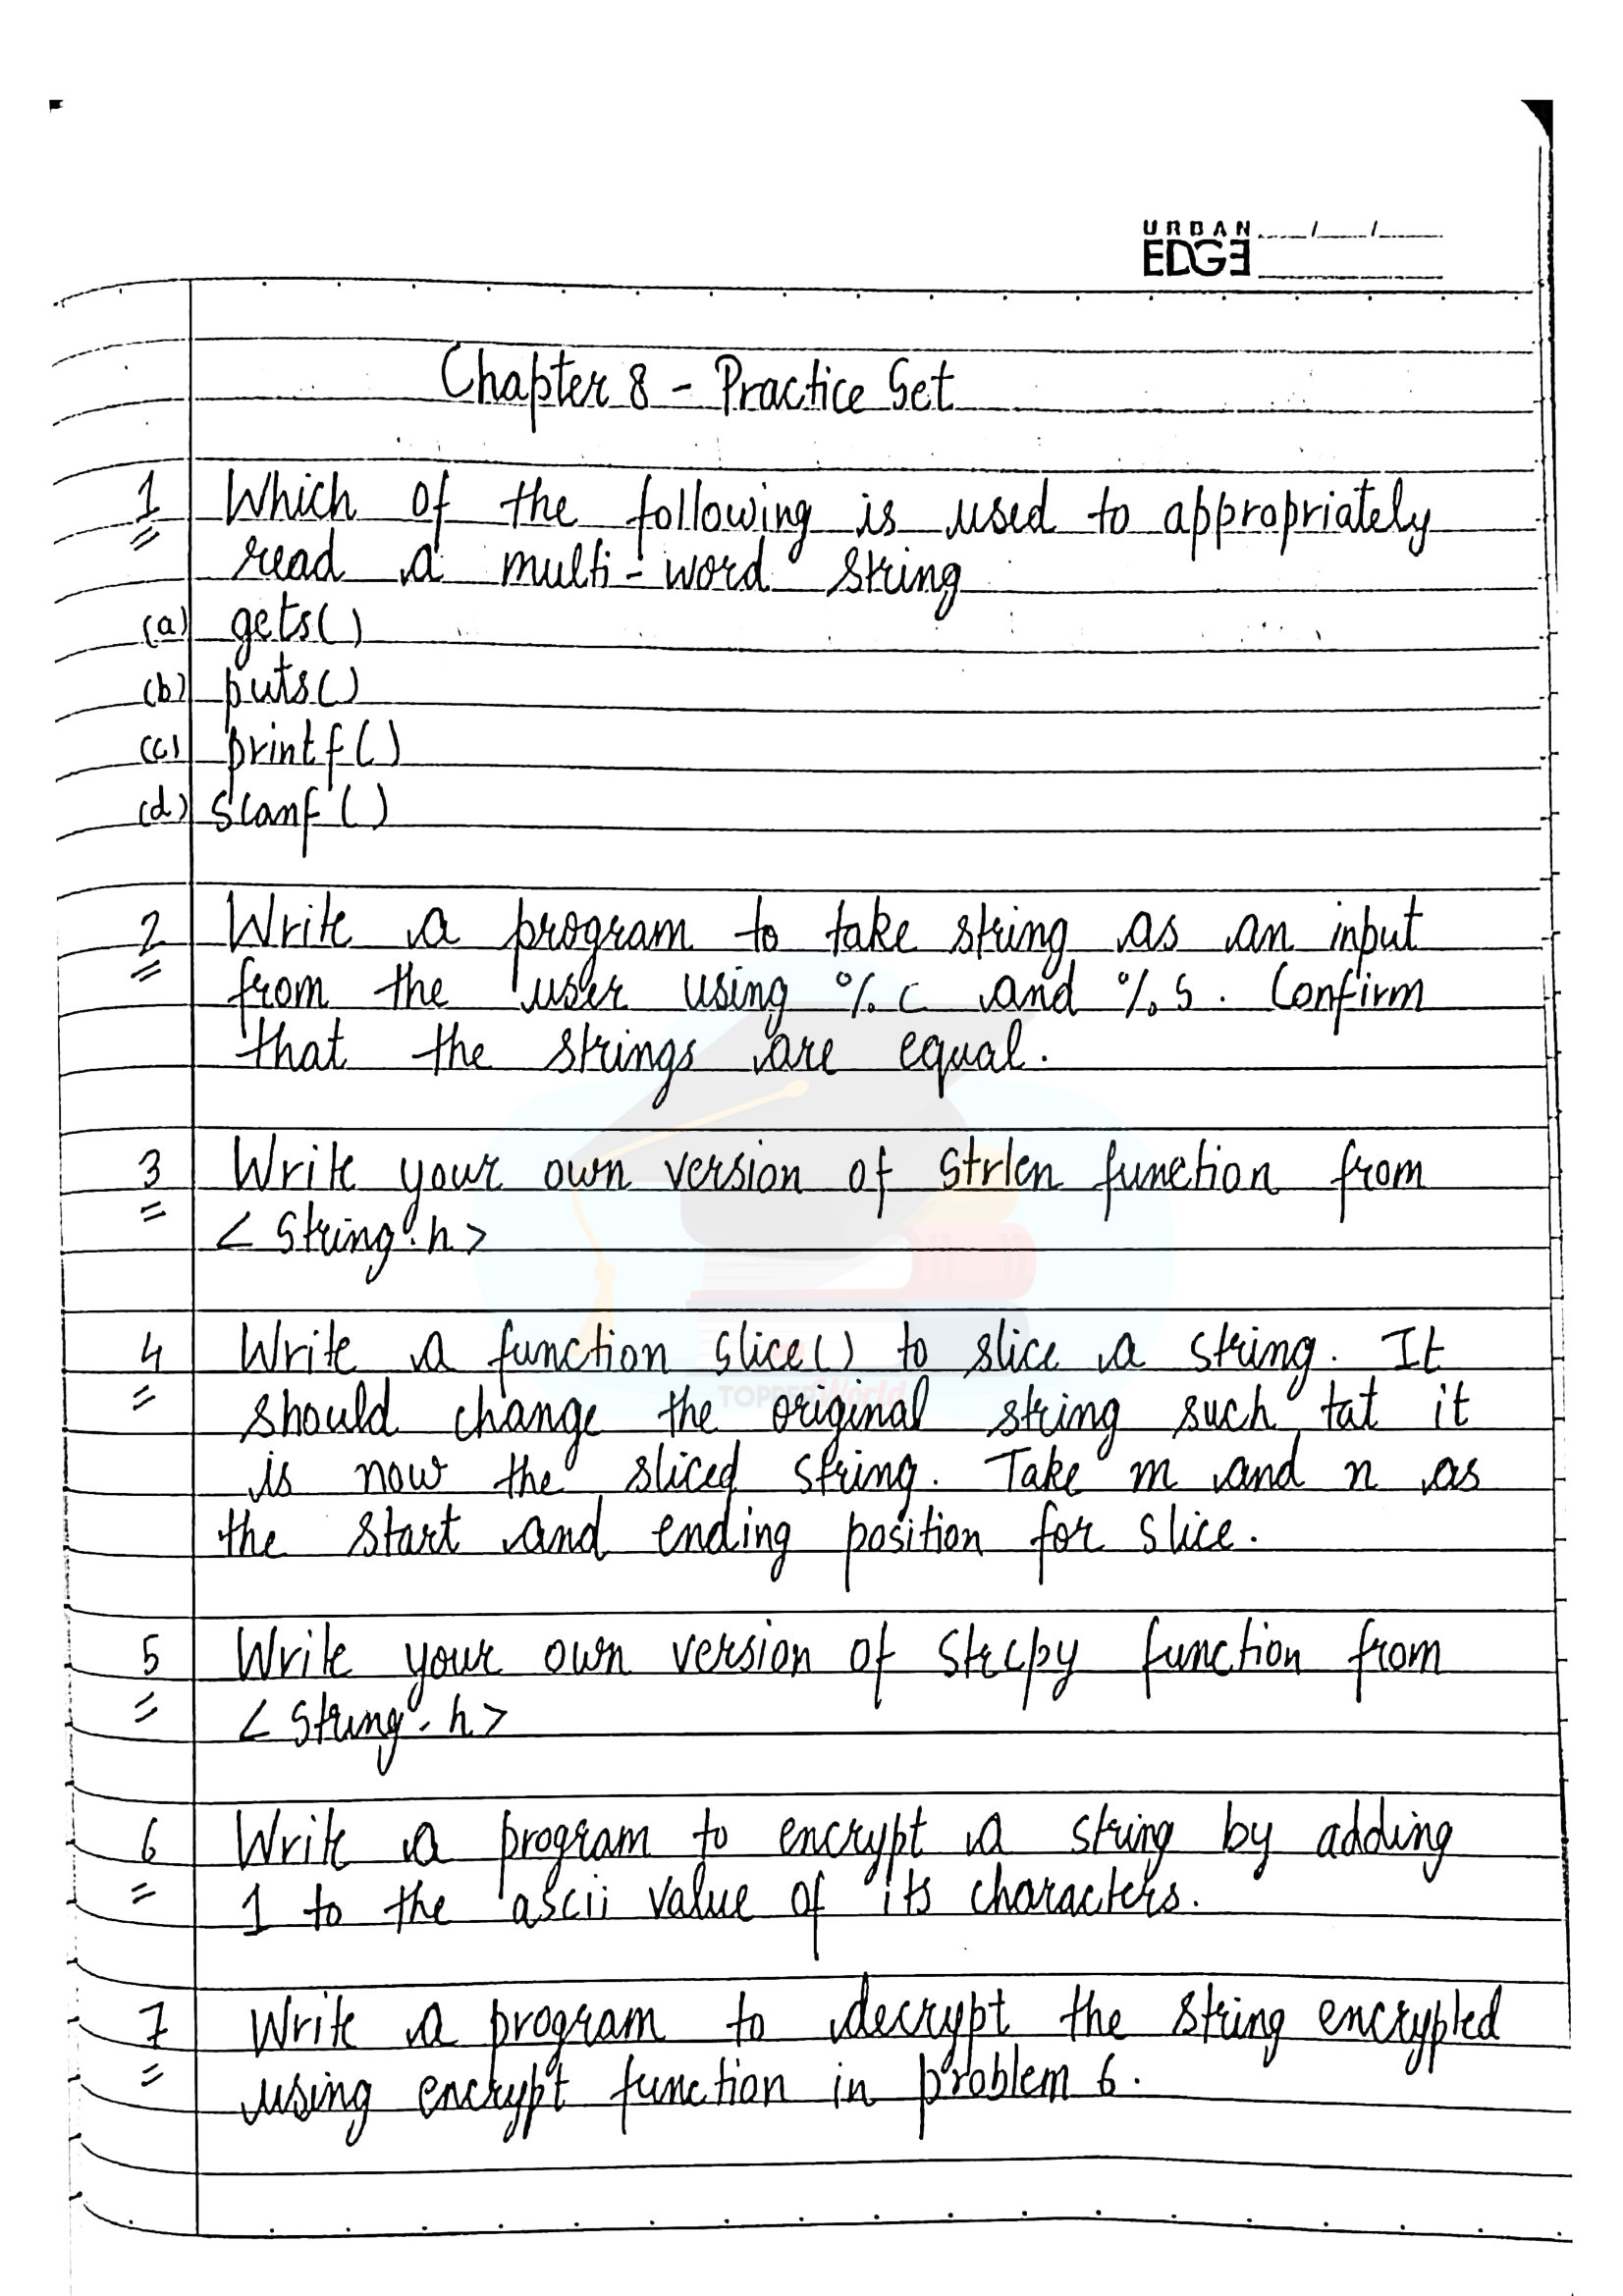 URBAN
EDGE
Chapter 8 - Practice Set
1 Which of the following is used to appropriately
read a multi-word string
(a) gets()
(b) puts()
(c) printf()
(d) scanf()
2 Write a program to take string as an input
from the user using %c and %s. Confirm
that the strings are equal.
3 Write your own version of strlen function from
<string.h>
4 Write a function slice() to slice a string. It
should change the original string such tat it
is now the sliced string. Take m and n as
the start and ending position for slice.
TOPPERWorld
5 Write your own version of strcpy function from
<string.h>
6 Write a program to encrypt a string by adding
1 to the ascii value of its characters.
7 Write a program to decrypt the string encrypted
using encrypt function in problem 6.